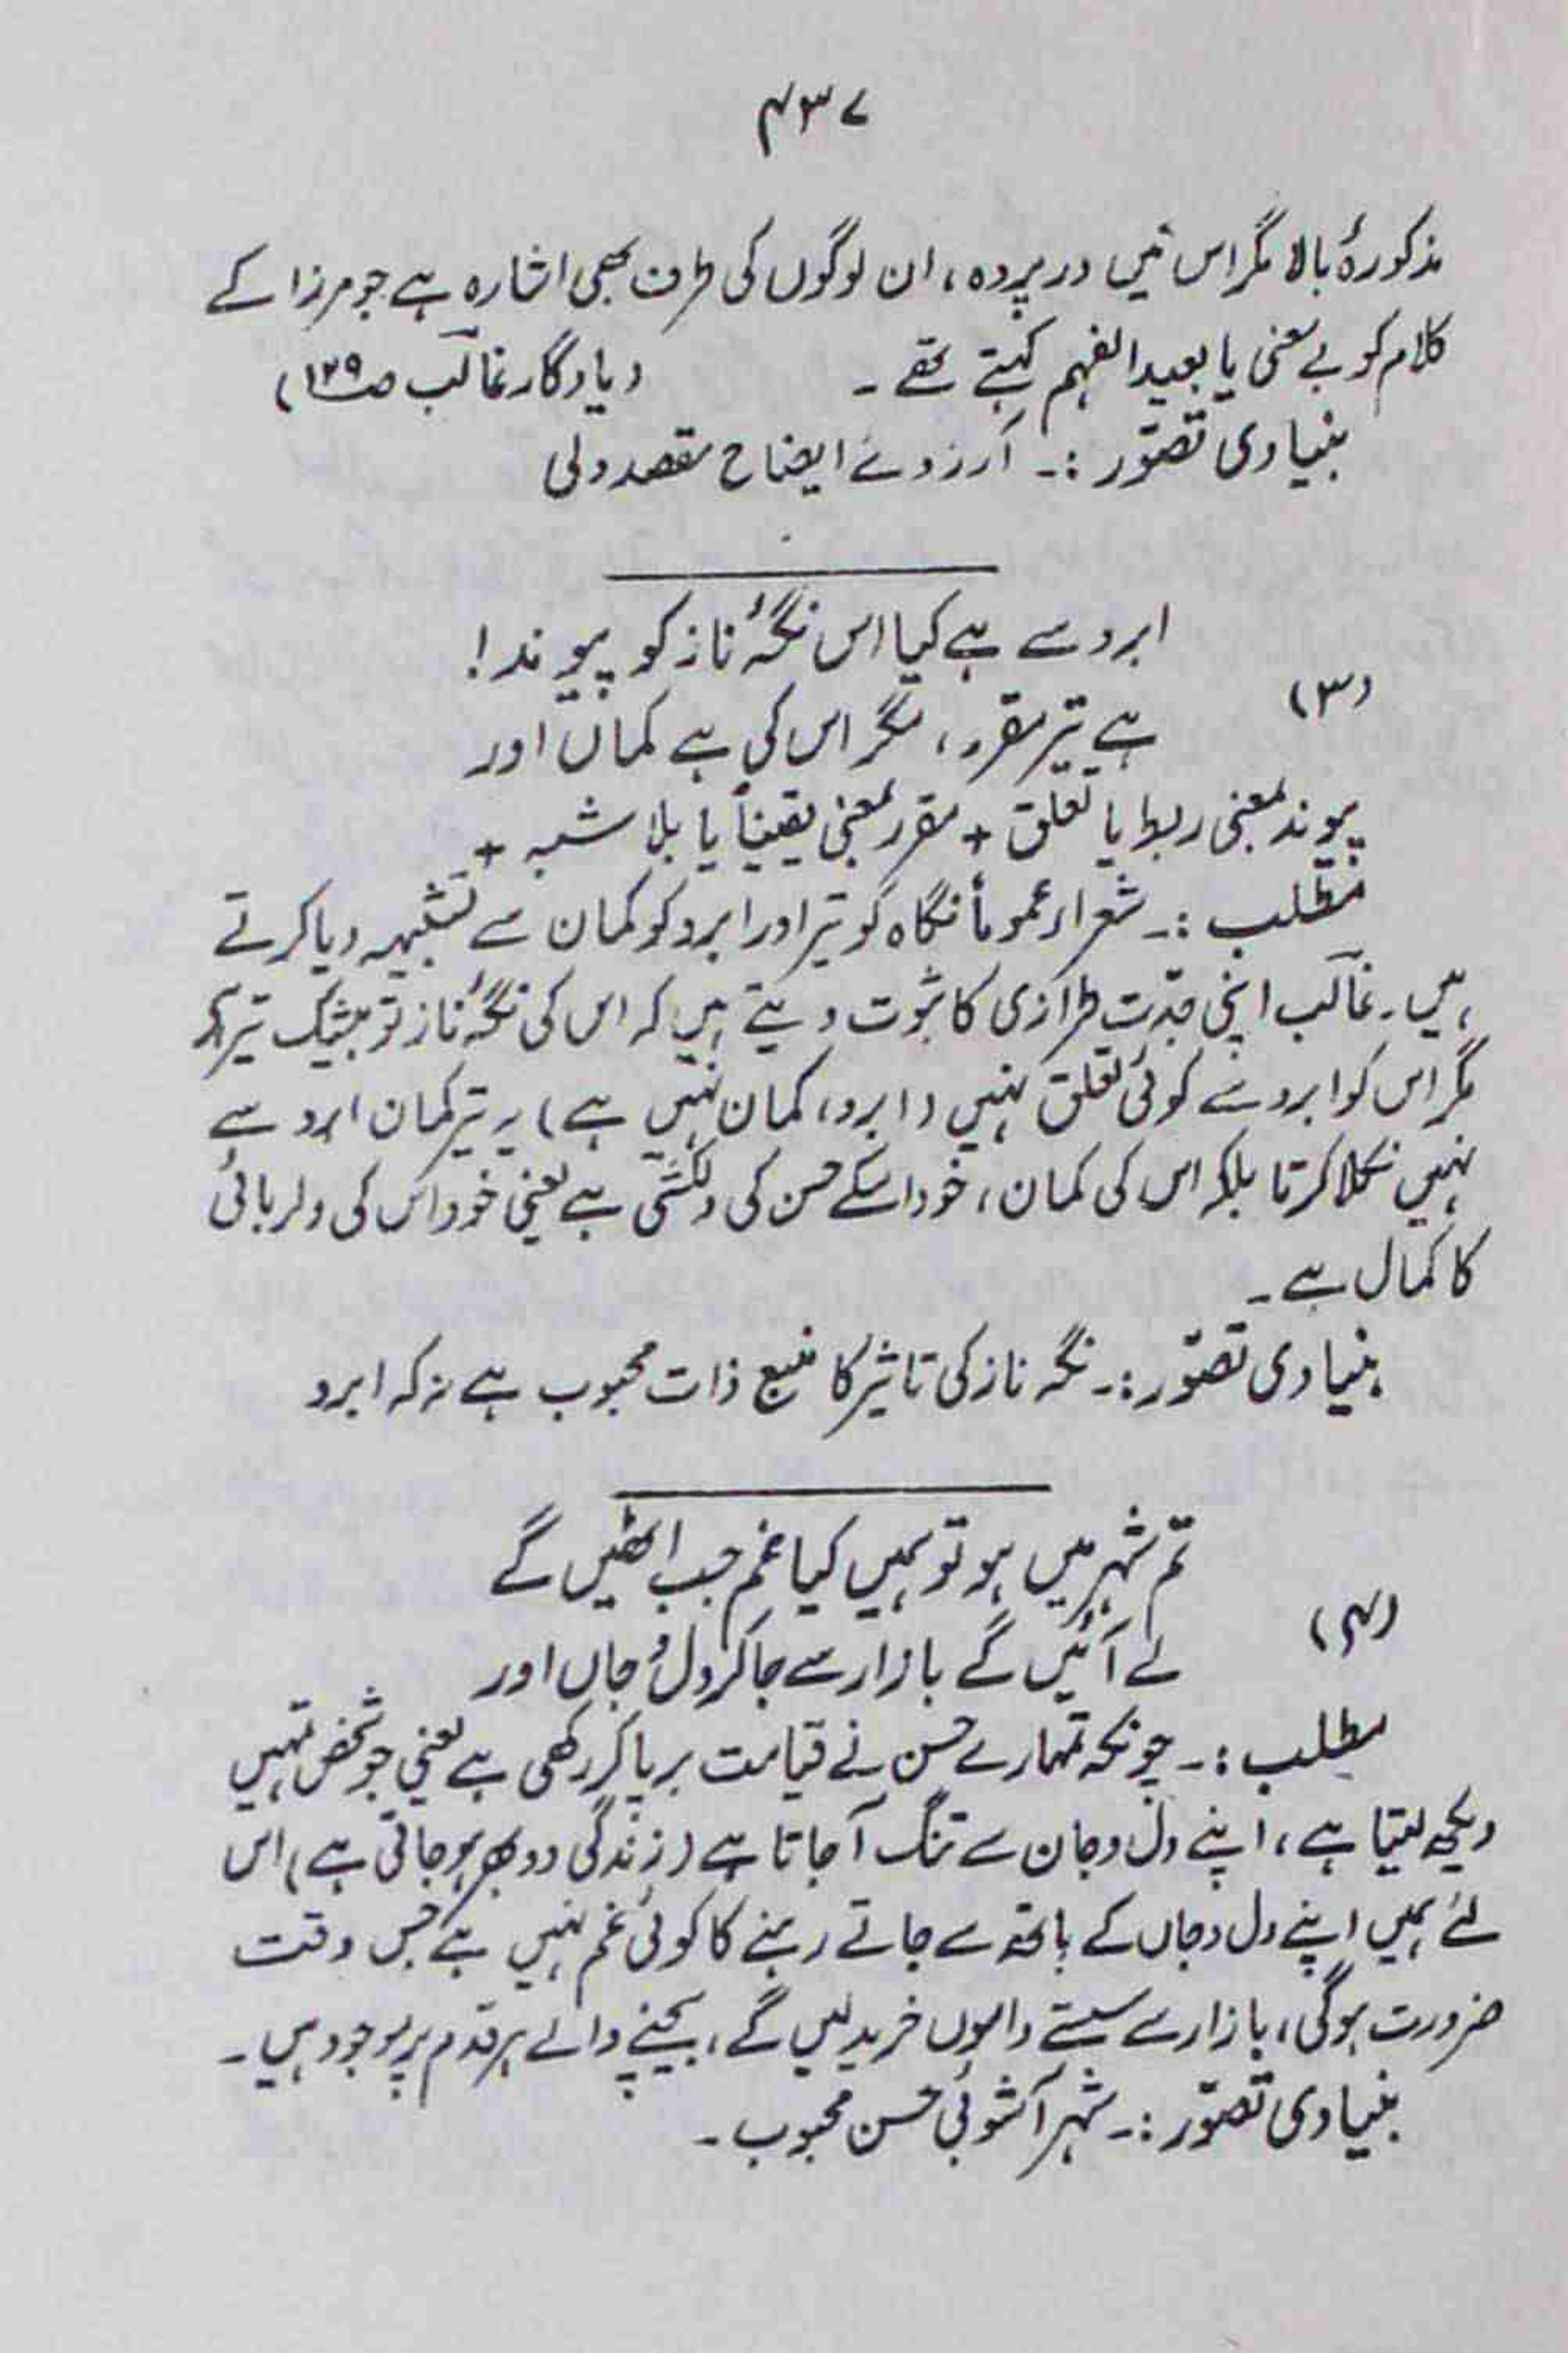 ۴۳۷
مذکورۂ بالا مگر اس میں در پردہ، ان لوگوں کی طرف بھی اشارہ ہے جو مرزا کے
کلام کو بے معنی یا بعید الفہم کہتے تھے۔ (یادگار غالب ص۱۲۹)
بنیادی تصوّر :۔ آرزوئے ایضاح مقصد دلی
ابرو سے ہے کیا اس نگۂ ناز کو پیوند!
(۳)
ہے تیر مقرر، مگر اس کی ہے کماں اور
پیوند بمعنی ربط یا تعلق + مقرر بمعنی یقیناً یا بلا شبہ +
مطلب :۔ شعراء عموماً نگاہ کو تیر اور ابرو کو کمان سے تشبیہہ دیا کرتے
ہیں۔ غالب اپنی جدّت طرازی کا ثبوت دیتے ہیں کہ اس کی نگۂ ناز تو بیشک تیر ہے
مگر اس کو ابرو سے کوئی تعلق نہیں (ابرو، کمان نہیں ہے) یہ تیر کمان ابرو سے
نہیں نکلا کرتا بلکہ اس کی کمان، خود اسکے حسن کی دلکشی ہے یعنی خود اس کی دلربائی
کا کمال ہے۔
بنیادی تصوّر :۔ نگہ ناز کی تاثیر کا منبع ذات محبوب ہے نہ کہ ابرو
تم شہر میں ہو تو ہمیں کیا غم جب اٹھیں گے
(۴)
لے آئیں گے بازار سے جا کر دل و جاں اور
مطلب :۔ چونکہ تمہارے حسن نے قیامت برپا کر رکھی ہے یعنی جو شخص تمہیں
دیکھ لیتا ہے، اپنے دل و جان سے تنگ آجاتا ہے (زندگی دوبھر ہو جاتی ہے) اس
لئے ہمیں اپنے دل و جاں کے ہاتھ سے جاتے رہنے کا کوئی غم نہیں ہے جس وقت
ضرورت ہو گی، بازار سے سستے داموں خرید لیں گے، بیچنے والے ہر قدم پر موجود ہیں۔
بنیادی تصوّر :۔ شہر آشوبی حسن محبوب۔